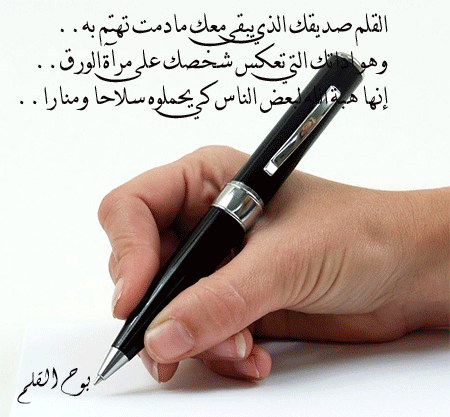 القلم صديقك الذي يبقى معك ما دمت تهتم به . .
وهو اداتك التي تعكس شخصك على مرآة الورق . .
إنها هبة الله لبعض الناس كي يحملوه سلاحا ومنارا . .
بوح القلم